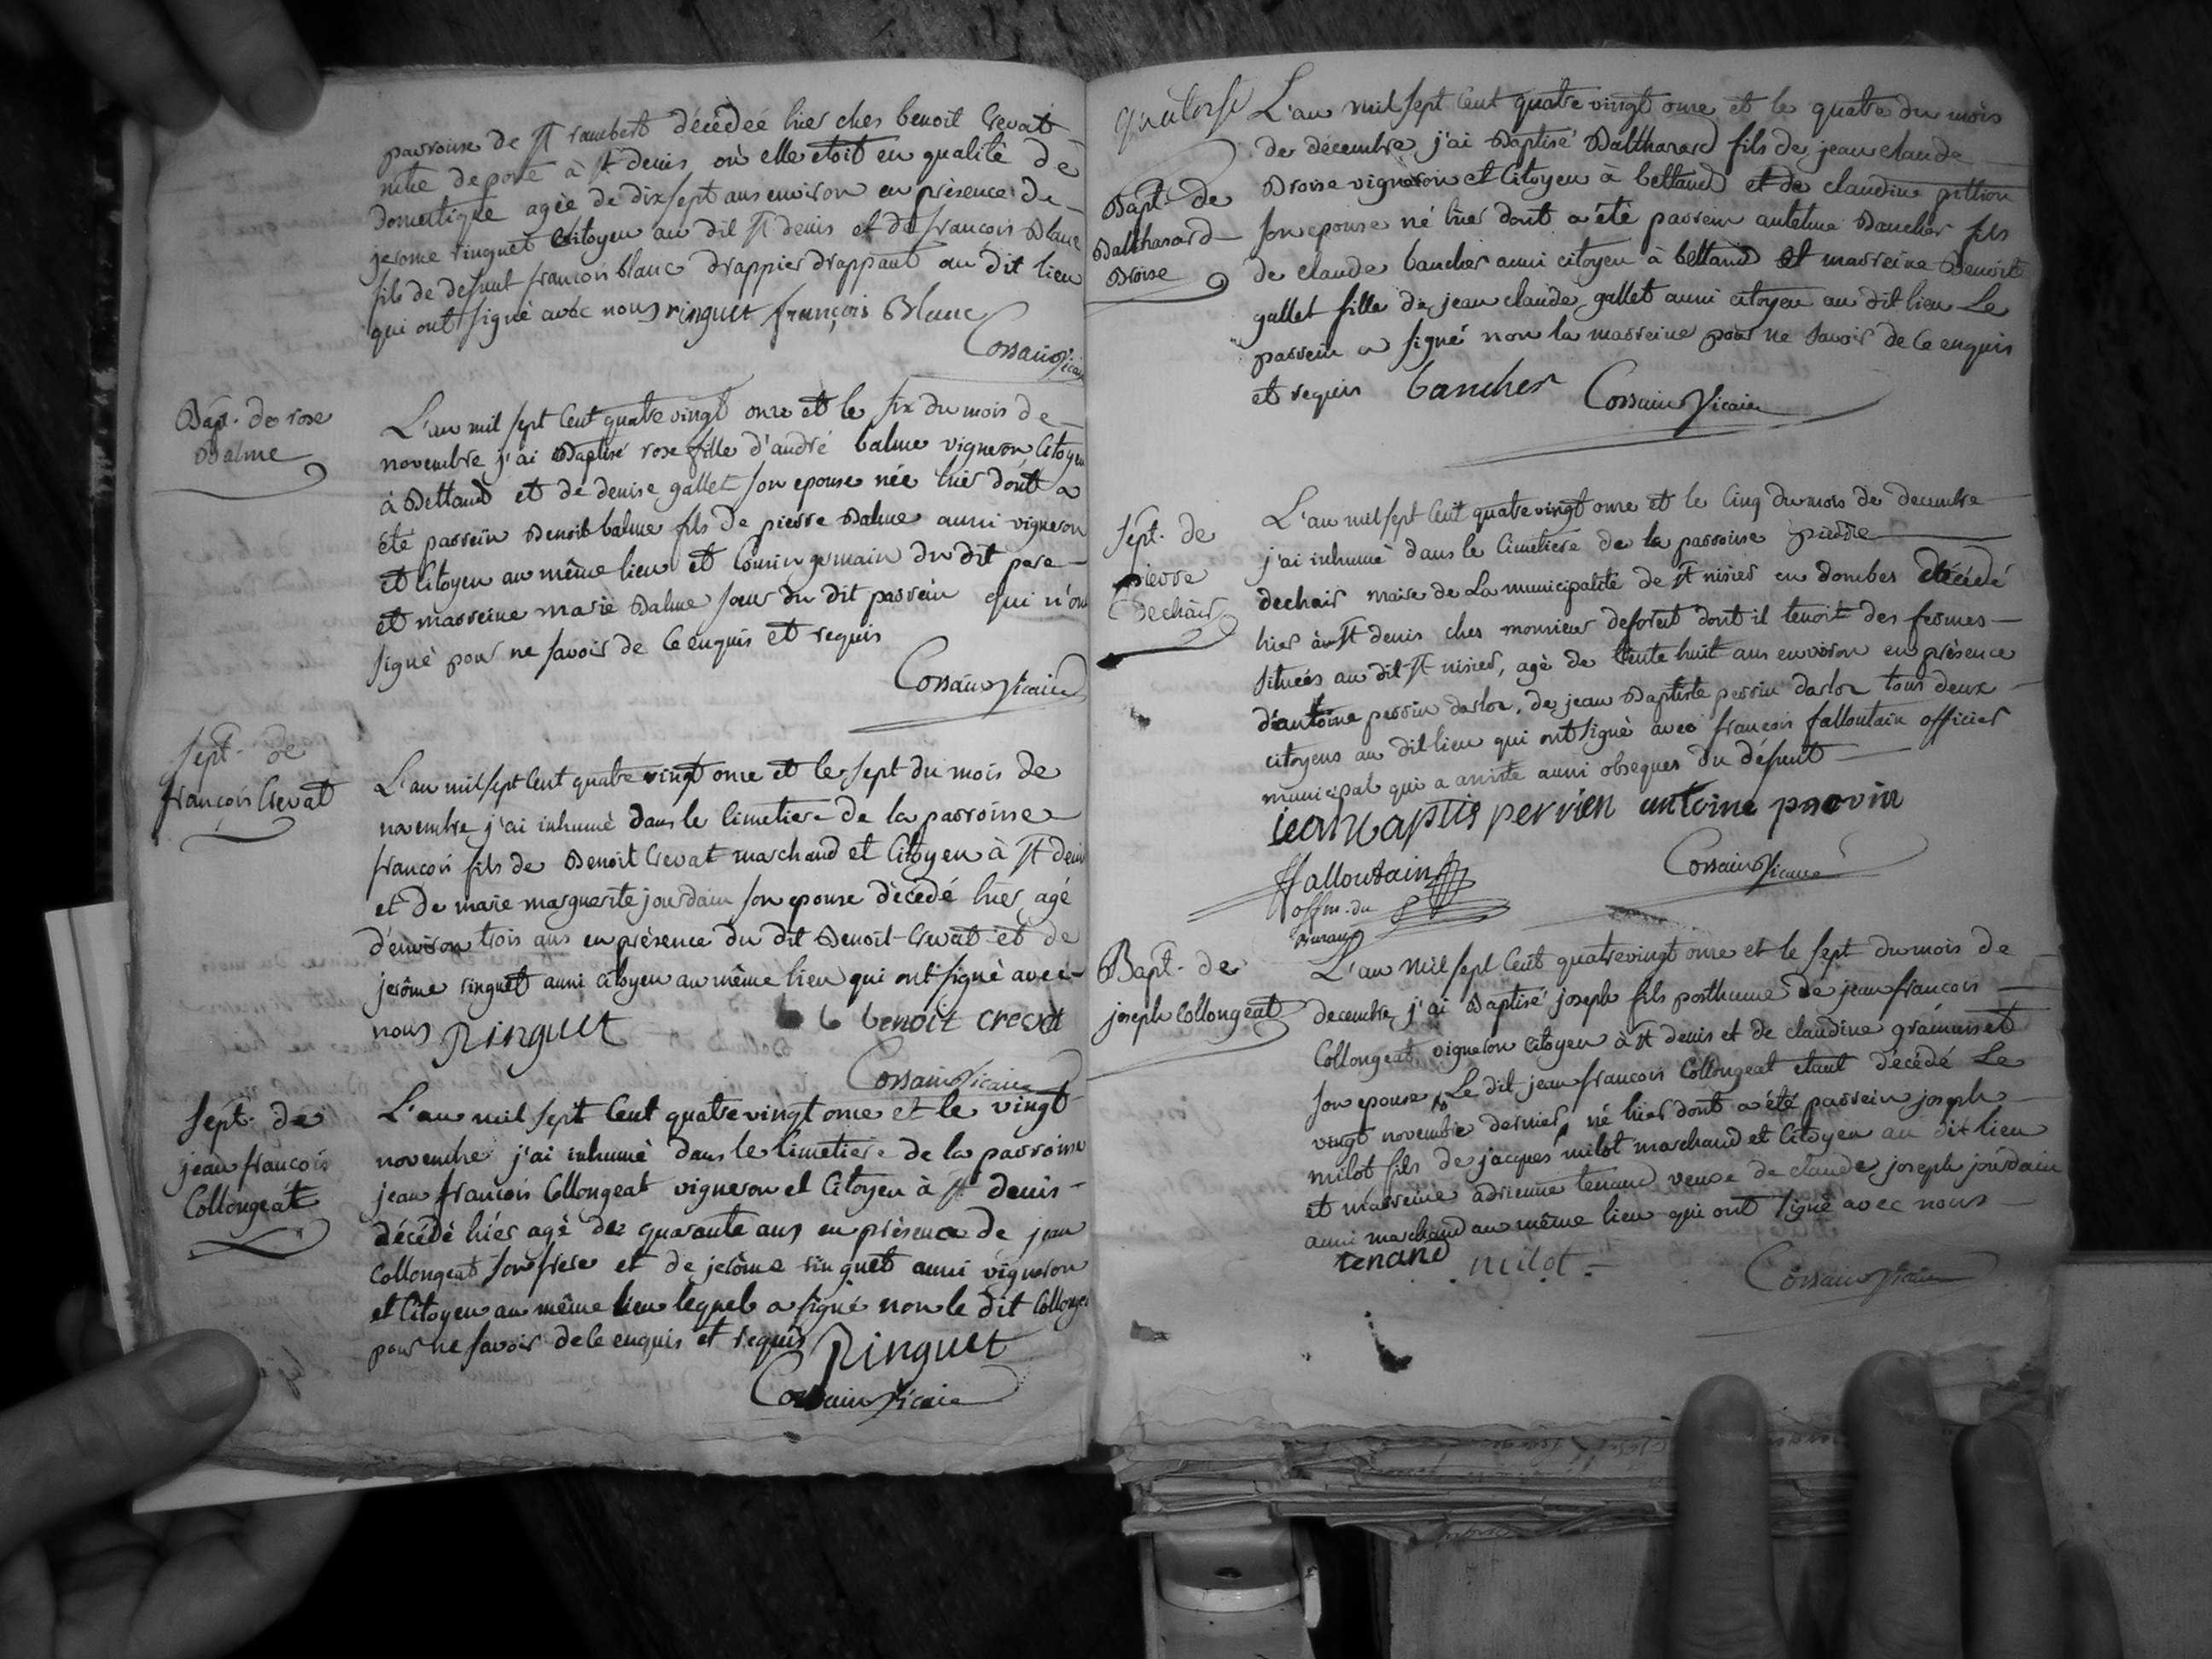 parroisse de St rambert décédée hier ches benoit Crevat
mtre de poste à St denis où elle etoit en qualité de
domestique agée de dix sept ans environ en présence de
jerome ringuet Citoyen au dit St denis et de francois Blanc
fils de defunt francois blanc drappier drappant au dit lieu
qui ont signé avec nous ringuet françois Blanc
Cossain Vicaire
Bapt. de rose
Balme
L'an mil sept Cent quatre vingt onze et le six du mois de
novembre j'ai Baptisé rose fille d'andré balme vigneron Citoyen
à Bettand et de denise gallet son epouse née hier dont a
été parrein Benoit balme fils de pierre Balme aussi vigneron
et Citoyen au même lieu et Cousin germain du dit pere
et marreine marie Balme soeur du dit parrein qui n'ont
signé pour ne savoir de Ce enquis et requis
Cossain Vicaire
Sept. de
françois Crevat
L'an mil sept Cent quatre vingt onze et le sept du mois de
novembre j'ai inhumé dans le Cimetiere de la parroisse
francois fils de Benoit Crevat marchand et Citoyen à St denis
et de marie marguerite jourdain son epouse décédé hier agé
d'environ trois ans en présence du dit Benoit Crevat et de
jerôme ringuet aussi citoyen au même lieu qui ont signé avec
nous Ringuet benoit crevat
Cossain Vicaire
Sept. de
jean francois
Collongeat
L'an mil sept Cent quatre vingt onze et le vingt
novembre j'ai inhumé dans le Cimetiere de la parroisse
jean francois Collongeat vigneron et Citoyen à St denis
décédé hier agé de quarante ans en présence de jean
Collongeat son frere et de jerôme ringuet aussi vigneron
et Citoyen au même lieu lequel a signé non le dit Collongeat
pour ne savoir de Ce enquis et requis Ringuet
Cossain Vicaire
quatorse
Bapt. de
Balthasard
Broise
L'an mil sept Cent quatre vingt onze et le quatre du mois
de décembre j'ai Baptisé Balthasard fils de jean claude
Broise vigneron et Citoyen à bettand et de claudine pittion
son epouse né hier dont a été parrein antelme Baucher fils
de claude baucher aussi citoyen à bettand et marreine Benoite
gallet fille de jean claude gallet aussi citoyen au dit lieu Le
parrein a signé non la marreine pour ne savoir de Ce enquis
et requis baucher Cossain Vicaire
Sept. de
pierre
Dechair
L'an mil sept Cent quatre vingt onze et le Cinq du mois de decembre
j'ai inhumé dans le Cimetiere de la parroisse pierre
dechair maire de La municipalité de St nisier en dombes décédé
hier à St denis ches monsieur deforest dont il tenoit des fermes
situées au dit St nisier, agé de trente huit ans environ en présence
d'antoine perrin darloz, de jean Baptiste perrin darloz tous deux
citoyens au dit lieu qui ont signé avec francois falloutain officier
municipal qui a assisté aussi obseques du défunt
jean baptis perrien antoine perrin
ffalloutain
offm. du
Bureau
Cossain Vicaire
Bapt. de
joseph Collongeat
L'an mil sept Cent quatrevingt onze et le sept du mois de
decembre j'ai Baptisé joseph fils posthume de jean francois
Collongeat vigneron Citoyen à St denis et de claudine
son epouse, Le dit jean francois Collongeat etant décédé Le
vingt novembre dernier, né hier dont a été parrein joseph
milot fils de jacques milot marchand et Citoyen au dit lieu
et marreine adrienne tenand veuve de claude joseph jourdain
aussi marchand au même lieu qui ont signé avec nous
tenand milot
Cossain Vicaire